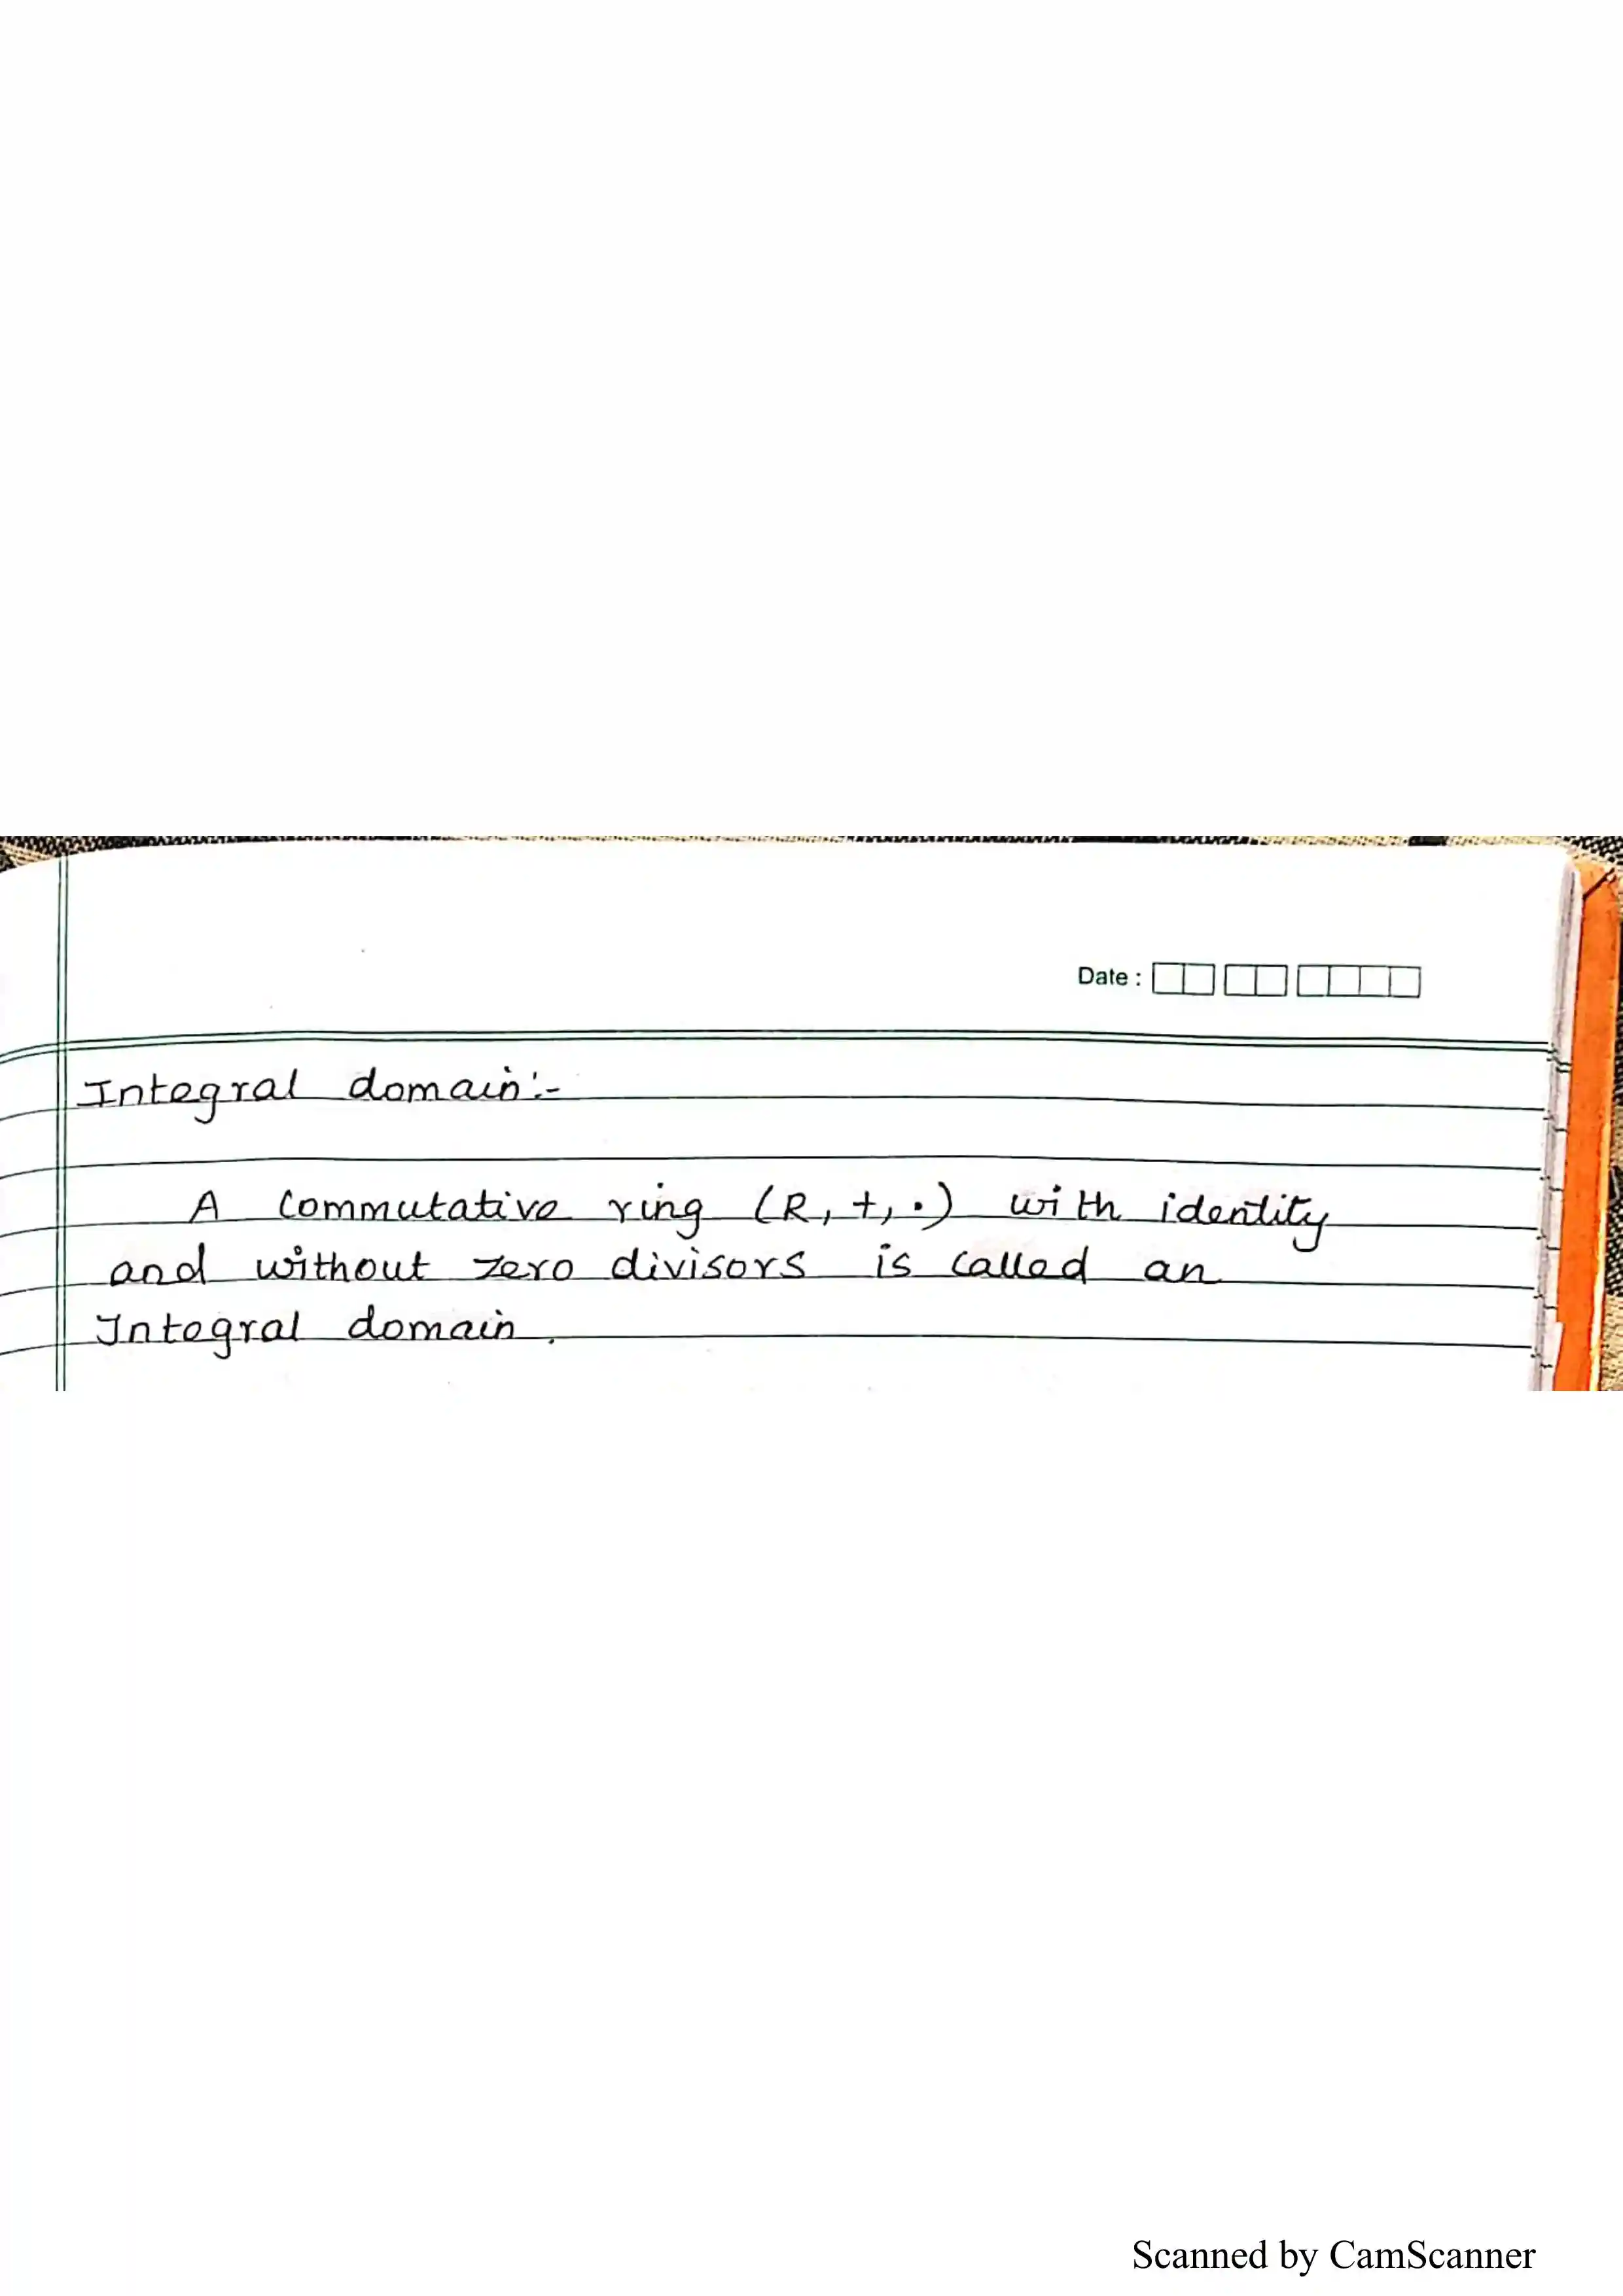 Date :
Integral domain:-
A commutative ring (R, +, •) with identity
and without zero divisors is called an
Integral domain.
Scanned by CamScanner